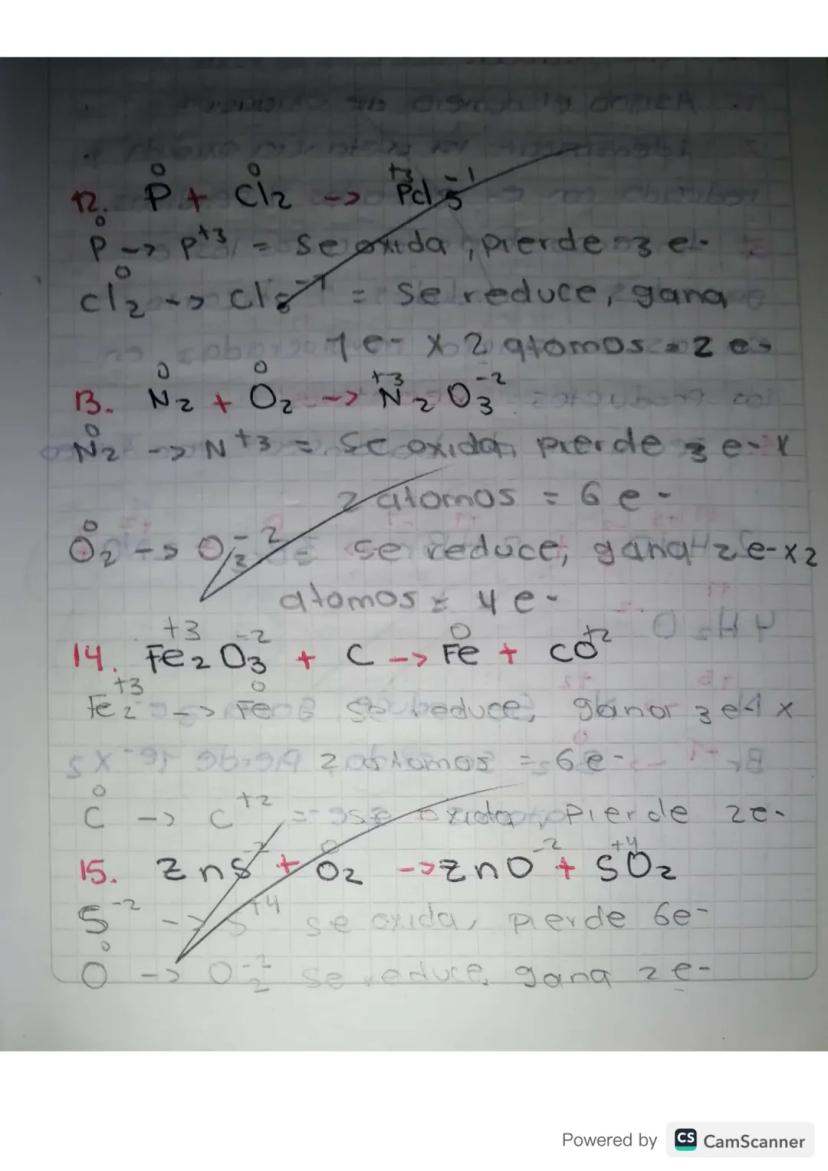 0 0 +3 -1
12. P + Cl2 -> PCl3
0
P -> P+3 = se oxida, pierde 3 e-
0
Cl2 -> Cl3-1 = se reduce, gana
1 e- x 2 atomos = 2 e-
0 0 +3 -2
13. N2 + O2 -> N2O3
0
N2 -> N+3 = se oxida, pierde 3 e- x
2 atomos = 6 e-
0
O2 -> O3-2 = se reduce, gana 2 e- x 2
atomos = 4 e-
+3 -2 0 +2
14. Fe2O3 + C -> Fe + CO
+3 0
Fe2 -> Fe se reduce, ganar 3 e- x
2 atomos = 6 e-
0
C -> C+2 = se oxida, pierde 2e-
-2 0 -2 +4
15. ZnS + O2 -> ZnO + SO2
S-2 -> S+4 se oxida, pierde 6e-
0
O -> O2-2 se reduce, gana 2 e-
Powered by CS CamScanner